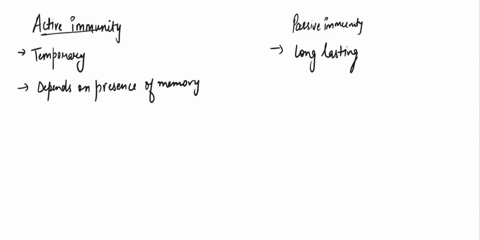 Active immunity
→ Temporary
→ Depends on presence of memory
Passive immunity
→ Long lasting